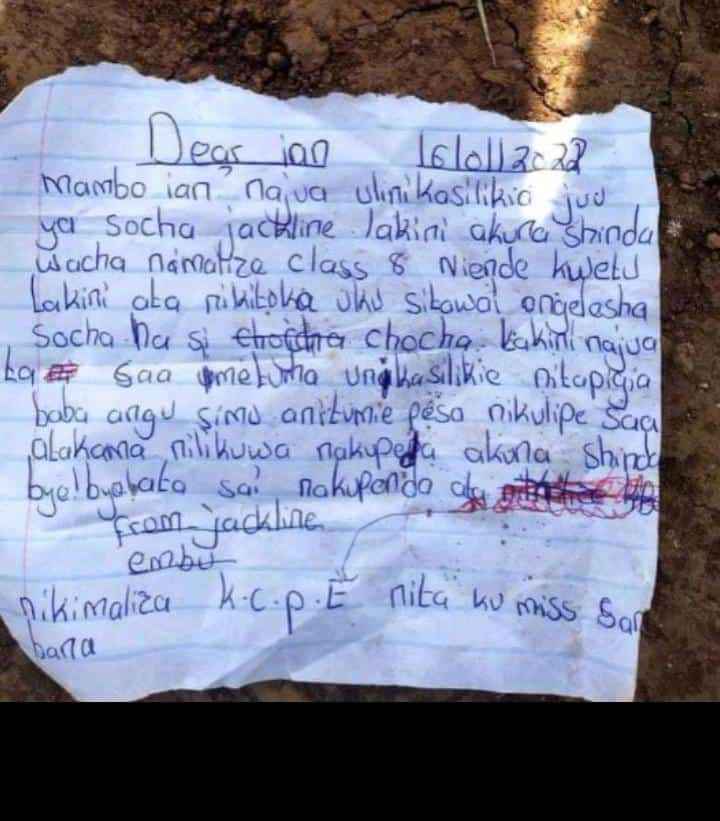 Dear ian 16/01/2022
Mambo ian najua ulinikasilikia juu
ya socha jackline lakini akuna shinda
wacha namaliza class 8 Niende kwetu
Lakini ata nikitoka uku sitawai ongelesha
socha na si chocha chocha. Lakini najua
ka saa umetuma unikasilikie nitapigia
baba angu simu anitumie pesa nikulipe saa
atakama nilikuwa nakupenda akuna shinda
bye! bye! ata sai nakupenda ata
from jackline
embu
nikimaliza k.c.p.E nita ku miss San
bana